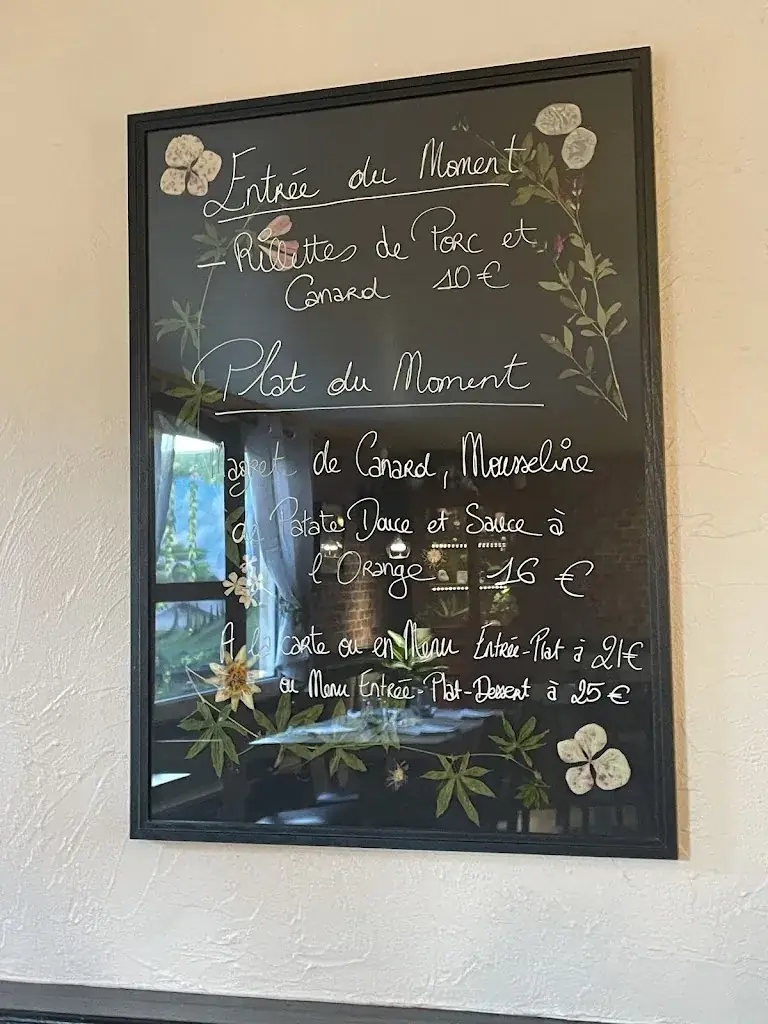 Entrée du Moment
- Rillettes de Porc et
Canard 10 €
Plat du Moment
Magret de Canard, Mousseline
de Patate Douce et Sauce à
l'Orange 16 €
A la carte ou en Menu Entrée-Plat à 21€
ou Menu Entrée-Plat-Dessert à 25 €